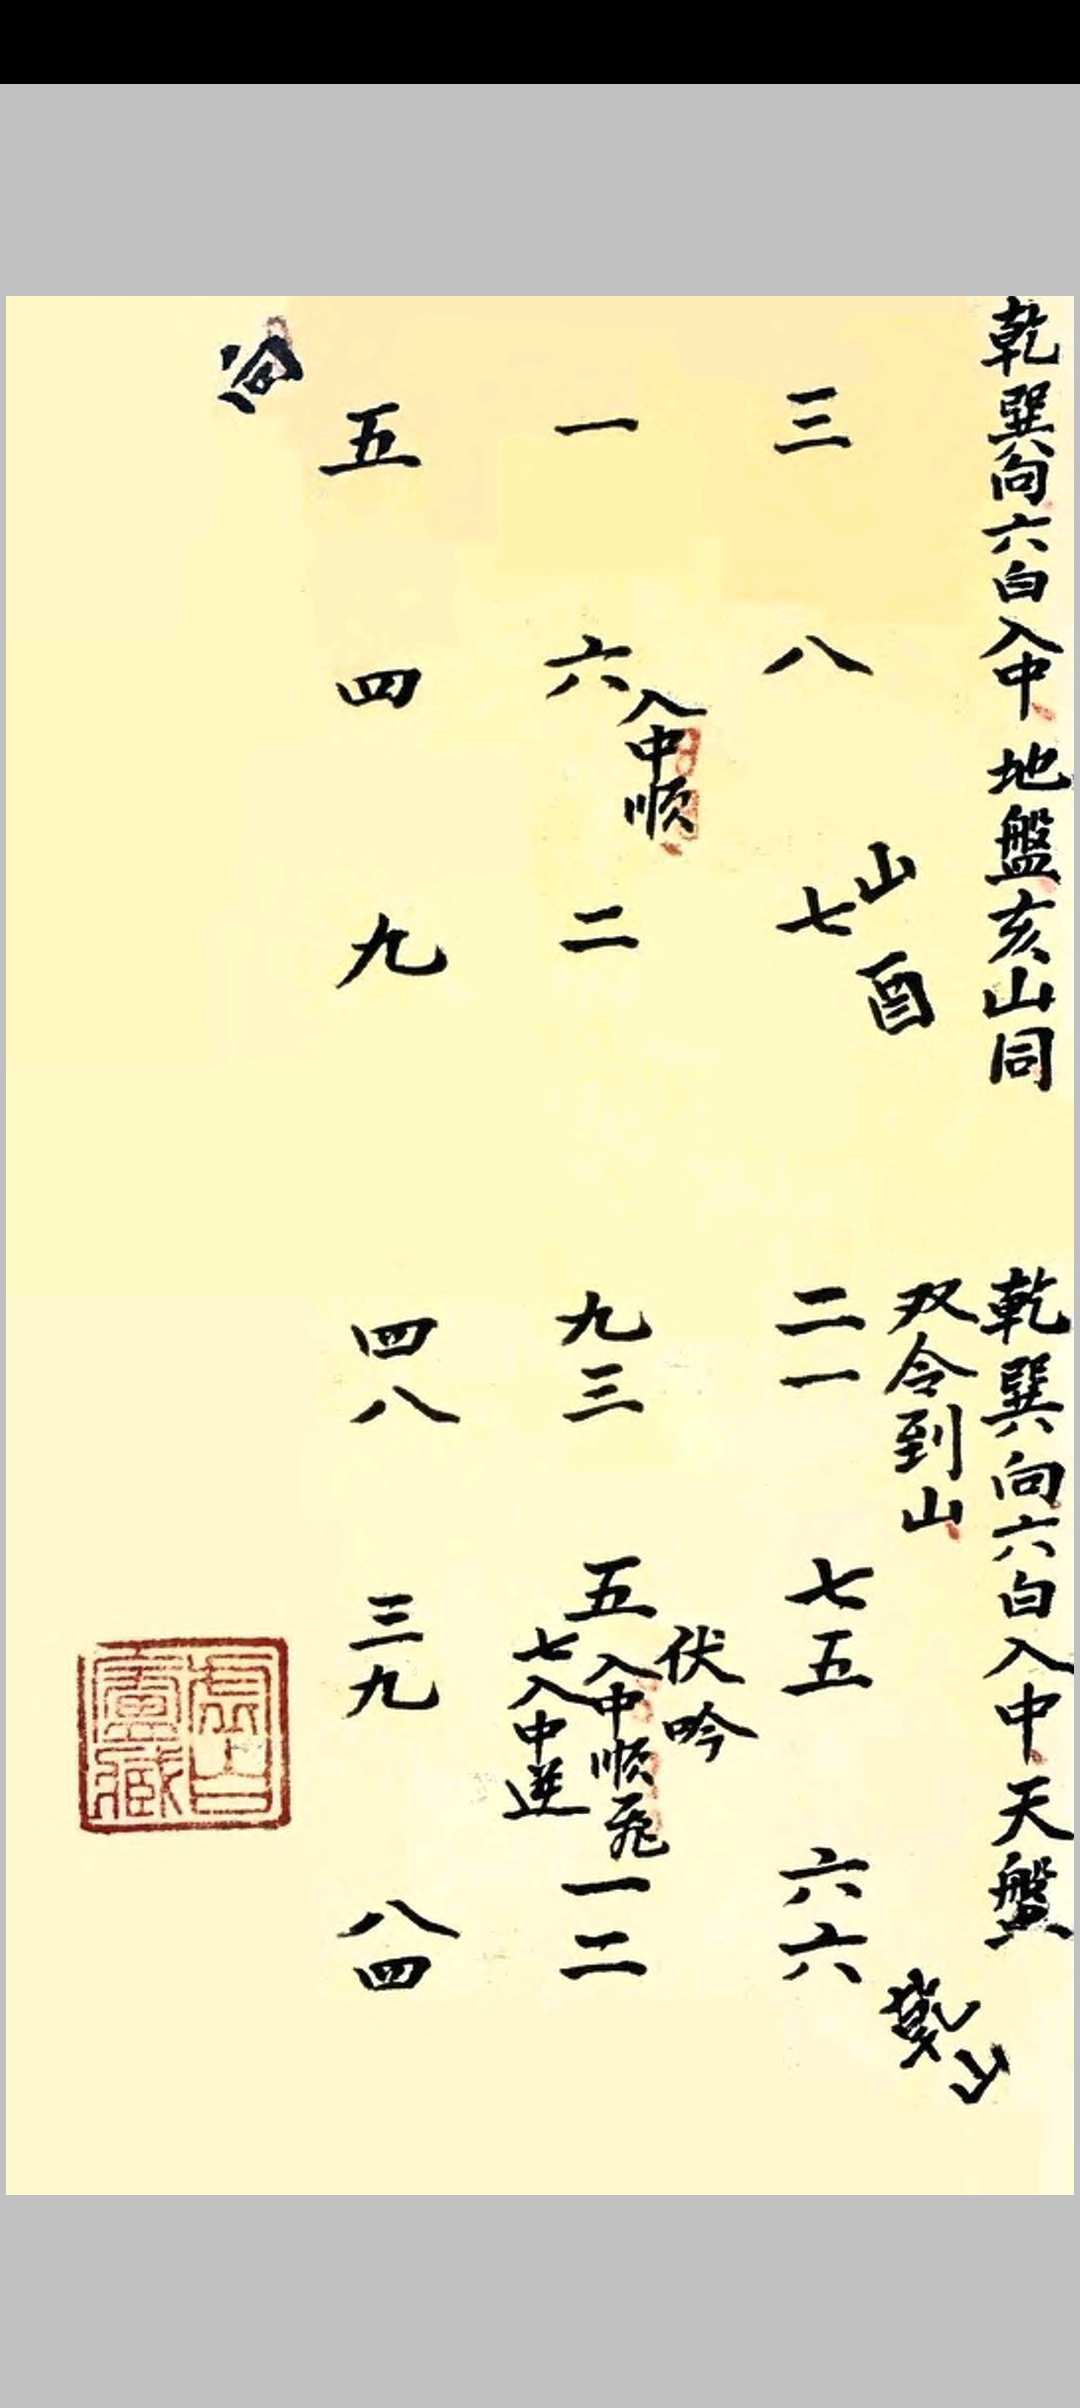 乾巽向六白入中地盤亥山同
三
八
七
山酉
一
六入中顺
二
向
五
四
九
乾巽向六白入中天盤
双令到山
二一
七五
六六
乾山
九三
伏吟
五入中顺飛
七入中逆
一二
四八
三九
八四